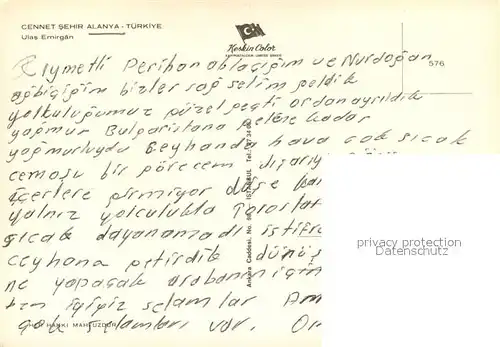 CENNET ŞEHIR ALANYA - TÜRKİYE
Ulaş Emirgân
Keskin Color
576
Kıymetli Perihan ablacığım ve Nurdoğan
ağbiciğim bizler sağ selim geldik
yolculuğumuz güzel geçti ordan ayrıldık
yağmur Bulgaristana gelene kadar
yağmurluydu Ceyhanda hava çok sıcak
cemoşu bir görecen dışarıy
içerlere girmiyor duşe
yalnız yolculukta Toroslar
sıcak dayanamadı istifra
Ceyhana getirdik dönüş
ne yapacak arabanın için
ben iyiyiz selamlar Am
çok selamları var. On
HER HAKKI MAHFUZDUR
Ankara Caddesi, No. İSTANBUL Tel.:
privacy protection
Datenschutz